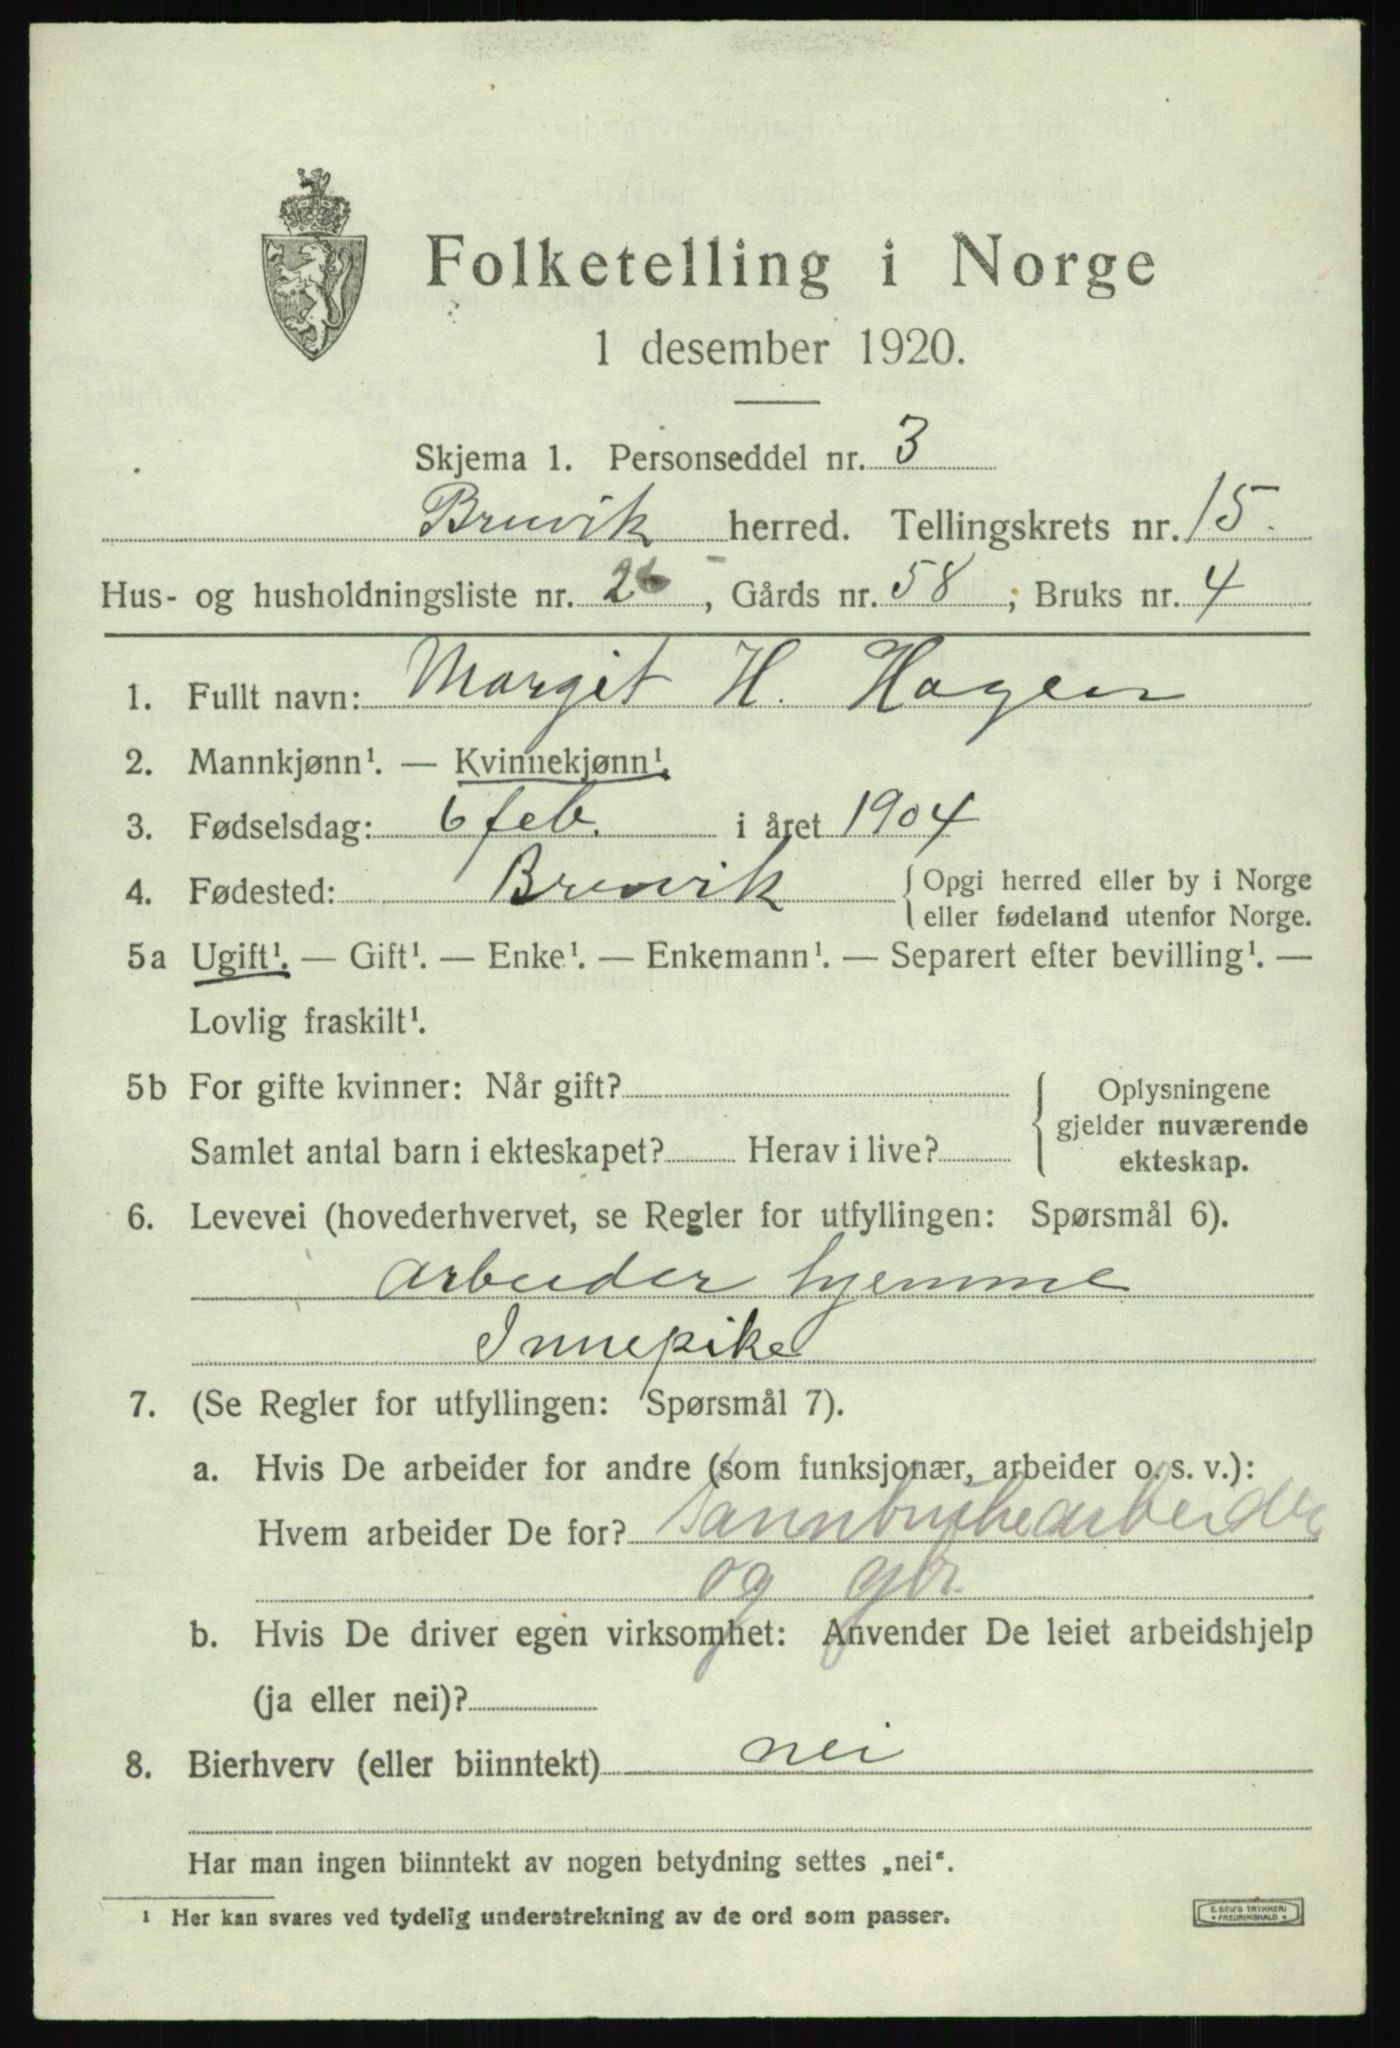 Folketelling i Norge
1 desember 1920.
Skjema 1. Personseddel nr. 3
Bruvik herred. Tellingskrets nr. 15.
Hus- og husholdningsliste nr. 26, Gårds nr. 58; Bruks nr. 4
1. Fullt navn: Margit H. Hagen
2. Mannkjønn¹. — Kvinnekjønn¹.
3. Fødselsdag: 6 feb. i året 1904
4. Fødested: Bruvik { Opgi herred eller by i Norge
eller fødeland utenfor Norge.
5a Ugift¹. — Gift¹. — Enke¹. — Enkemann¹. — Separert efter bevilling¹. —
Lovlig fraskilt¹.
5b For gifte kvinner: Når gift?
Samlet antal barn i ekteskapet? Herav i live?
{ Oplysningene
gjelder nuværende
ekteskap.
6. Levevei (hovederhvervet, se Regler for utfyllingen: Spørsmål 6).
arbeider hjemme
Innepike
7. (Se Regler for utfyllingen: Spørsmål 7).
a. Hvis De arbeider for andre (som funksjonær, arbeider o. s. v.):
Hvem arbeider De for?
og gbr.
b. Hvis De driver egen virksomhet: Anvender De leiet arbeidshjelp
(ja eller nei)?
8. Bierhverv (eller biinntekt) nei
Har man ingen biinntekt av nogen betydning settes „nei“.
¹ Her kan svares ved tydelig understrekning av de ord som passer.
E. SEM'S TRYKKERI
* FREDRIKSHALD *